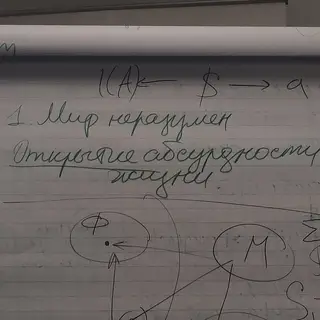 I(A) ← $ → a
1. Мир неразумен
Открытие абсурдности
жизни.
Ф
М
S